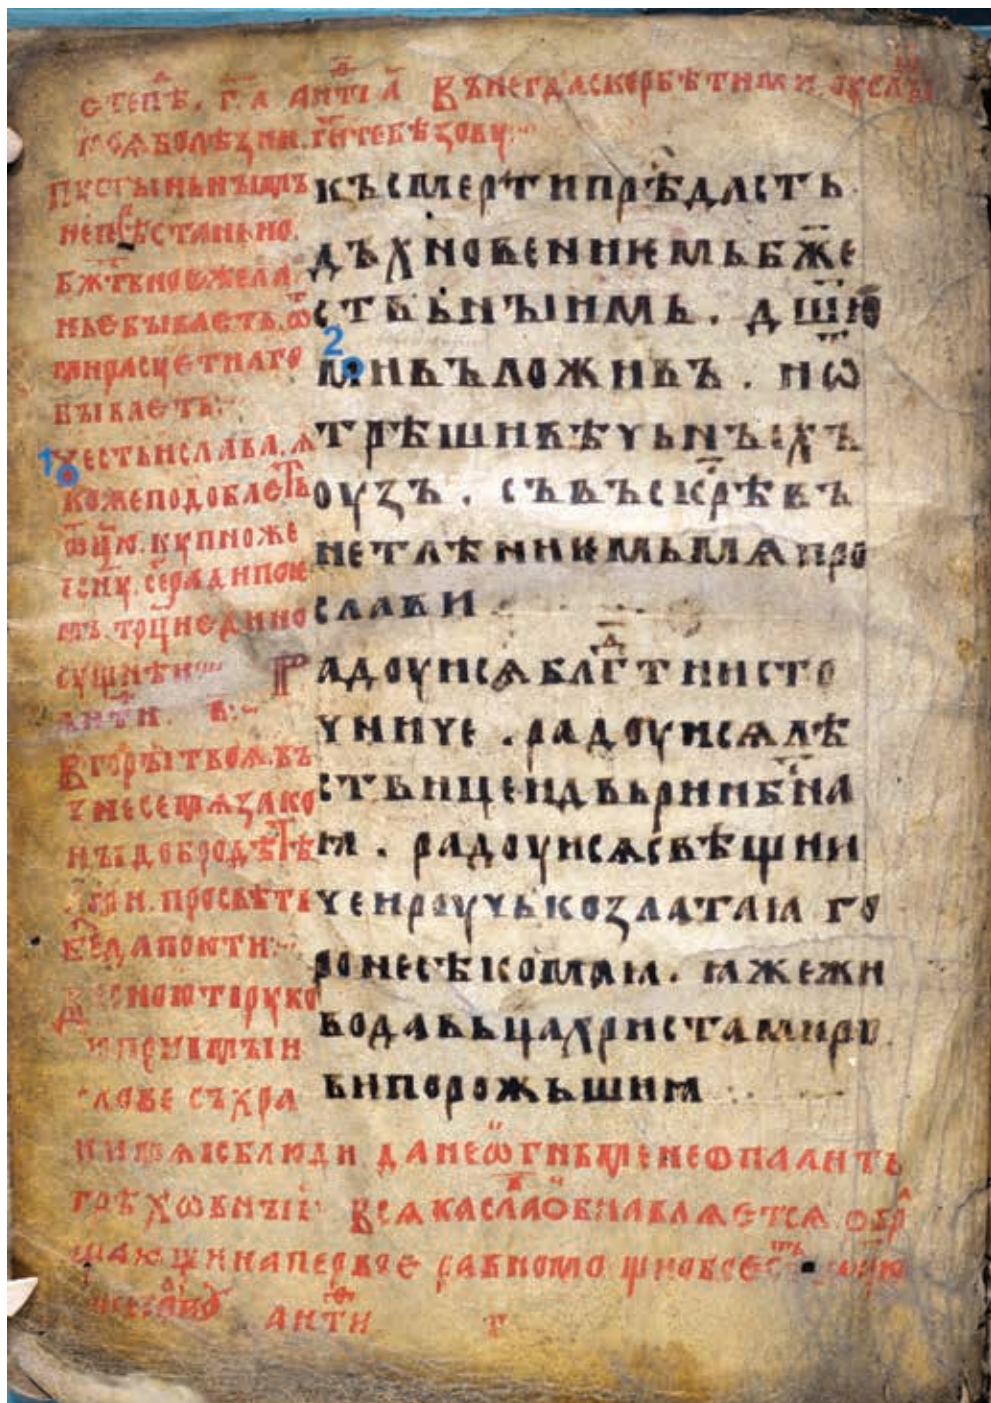 степѣ. г҃ла анті а҃ Въ негдаскорбѣтими. ѹслꙑ
моѧболѣзни. г҃и тебѣзову
пѹстыньнымъ
непрѣстаньно.
бж҃тьноѡжела
ньебываеть. ѿ
мирасуетнаго
бываеть
честьислава. ꙗ
кожеподобаеть
ѿц҃ю. купноже
сн҃у. сегорадипоѥ
мъ. трц҃иедино
сущнѣи
анти. в҃
Вгорытвоѧ. въ
знесемѧзако
ныдобродѣтѣ
. просвѣти
бж҃едапоютн
Десноютируко
юприимыи
словесъхра
нимѧисблюди данеѡгньмьенеопалить
грѣхѡвныи всякаслаобнавлѧется обр
щающиинапервое равномощновсес
анти г
1
2
късмертипрѣдасть
дъхновениѥмьбж҃е
ствьнꙑимь. дш҃ю
мивъложивъ. иѿ
трѣшивѣчьнꙑихъ
оузъ. съвъскр҃ѣвъ
нетлѣниѥмьмѧпро
слави
Радоуисѧблг҃тиисто
чниче. радоуисѧлѣ
ствицеидвьриинб҃на
ꙗ. радоуисѧсвѣщни
чеироучькозлатаꙗ го
ронесѣкомаꙗ. ꙗжежи
водавьцахристамиро
випорожьшиꙗ